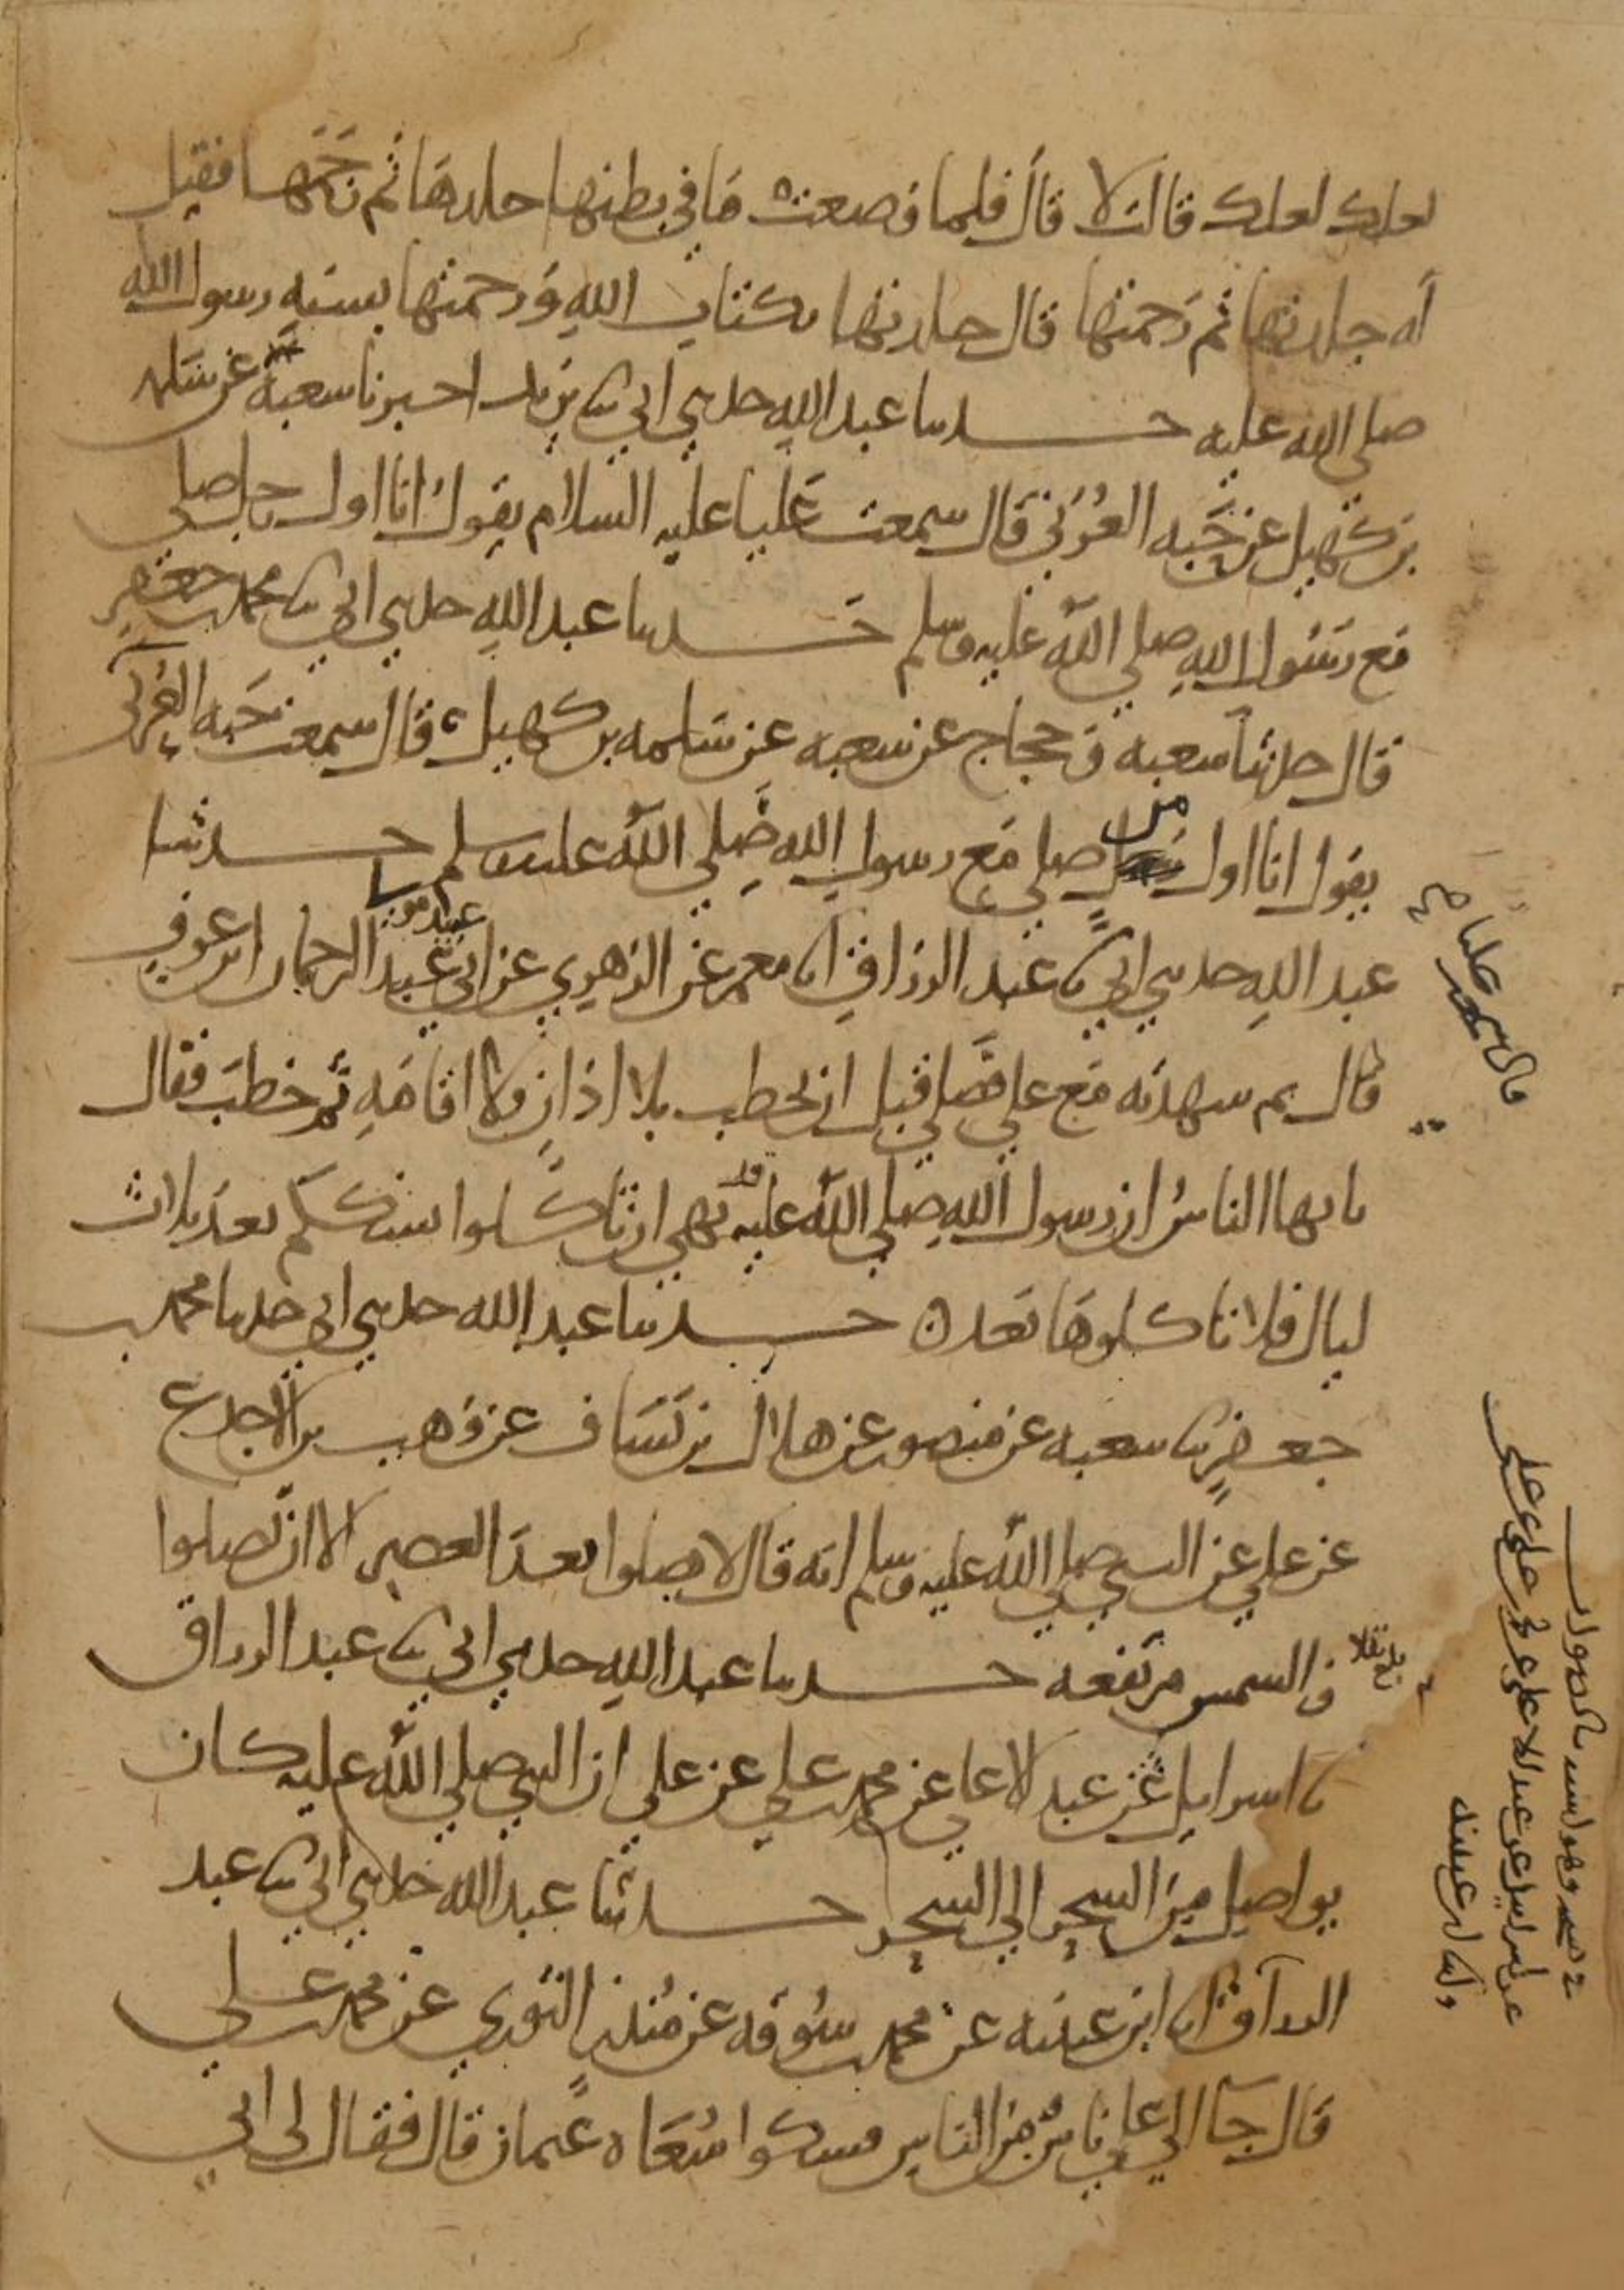 لعلك لعلك قالت لا قال فلما وضعت ما في بطنها جلدها ثم رجمها فقيل
له جلدتها ثم رجمتها قال جلدتها بكتاب الله ورجمتها بسنة رسول الله
صلى الله عليه حدثنا عبد الله حدثني ابي ثنا يزيد اخبرنا شعبة عن سلمه
بن كهيل عن حبه العرني قال سمعت عليا عليه السلام يقول انا اول رجل صلى
مع رسول الله صلى الله عليه وسلم حدثنا عبد الله حدثني ابي ثنا محمد بن جعفر
قال حدثنا شعبه وحجاج عن شعبه عن سلمه بن كهيل قال سمعت حبه العرني
يقول انا اول من صلى مع رسول الله صلى الله عليه وسلم حدثنا
عبد الله حدثني ابي ثنا عبد الرزاق انا معمر عن الزهري عن ابي عبيد مولى عبد الرحمان ابن عوف
قال ثم شهدته مع علي فصلى قبل ان يخطب بلا اذان ولا اقامه ثم خطب فقال
يا ايها الناس ان رسول الله صلى الله عليه قد نهى ان تاكلوا نسككم بعد ثلاث
ليال فلا تاكلوها بعد حدثنا عبد الله حدثني ابي حدثنا محمد بن
جعفر ثنا شعبه عن منصور عن هلال بن يساف عن وهب بن الاجدع
عن علي عن النبي صلى الله عليه وسلم انه قال لا تصلوا بعد العصر الا ان تصلوا
والشمس مرتفعه حدثنا عبد الله حدثني ابي ثنا عبد الرزاق
انا اسرايل عن عبد الاعلى عن محمد بن علي عن علي ان النبي صلى الله عليه كان
يواصل من السحر الى السحر حدثنا عبد الله حدثني ابي ثنا عبد
الرزاق انا ابن عيينه عن محمد بن سوقه عن منذر الثوري عن محمد بن علي
قال جا الى علي ناس من الناس فشكوا سعاه عثمان قال فقال لي ابي
قال سمعت عليا
عن اسرايل عن عبد الاعلى عن محمد بن علي عن علي